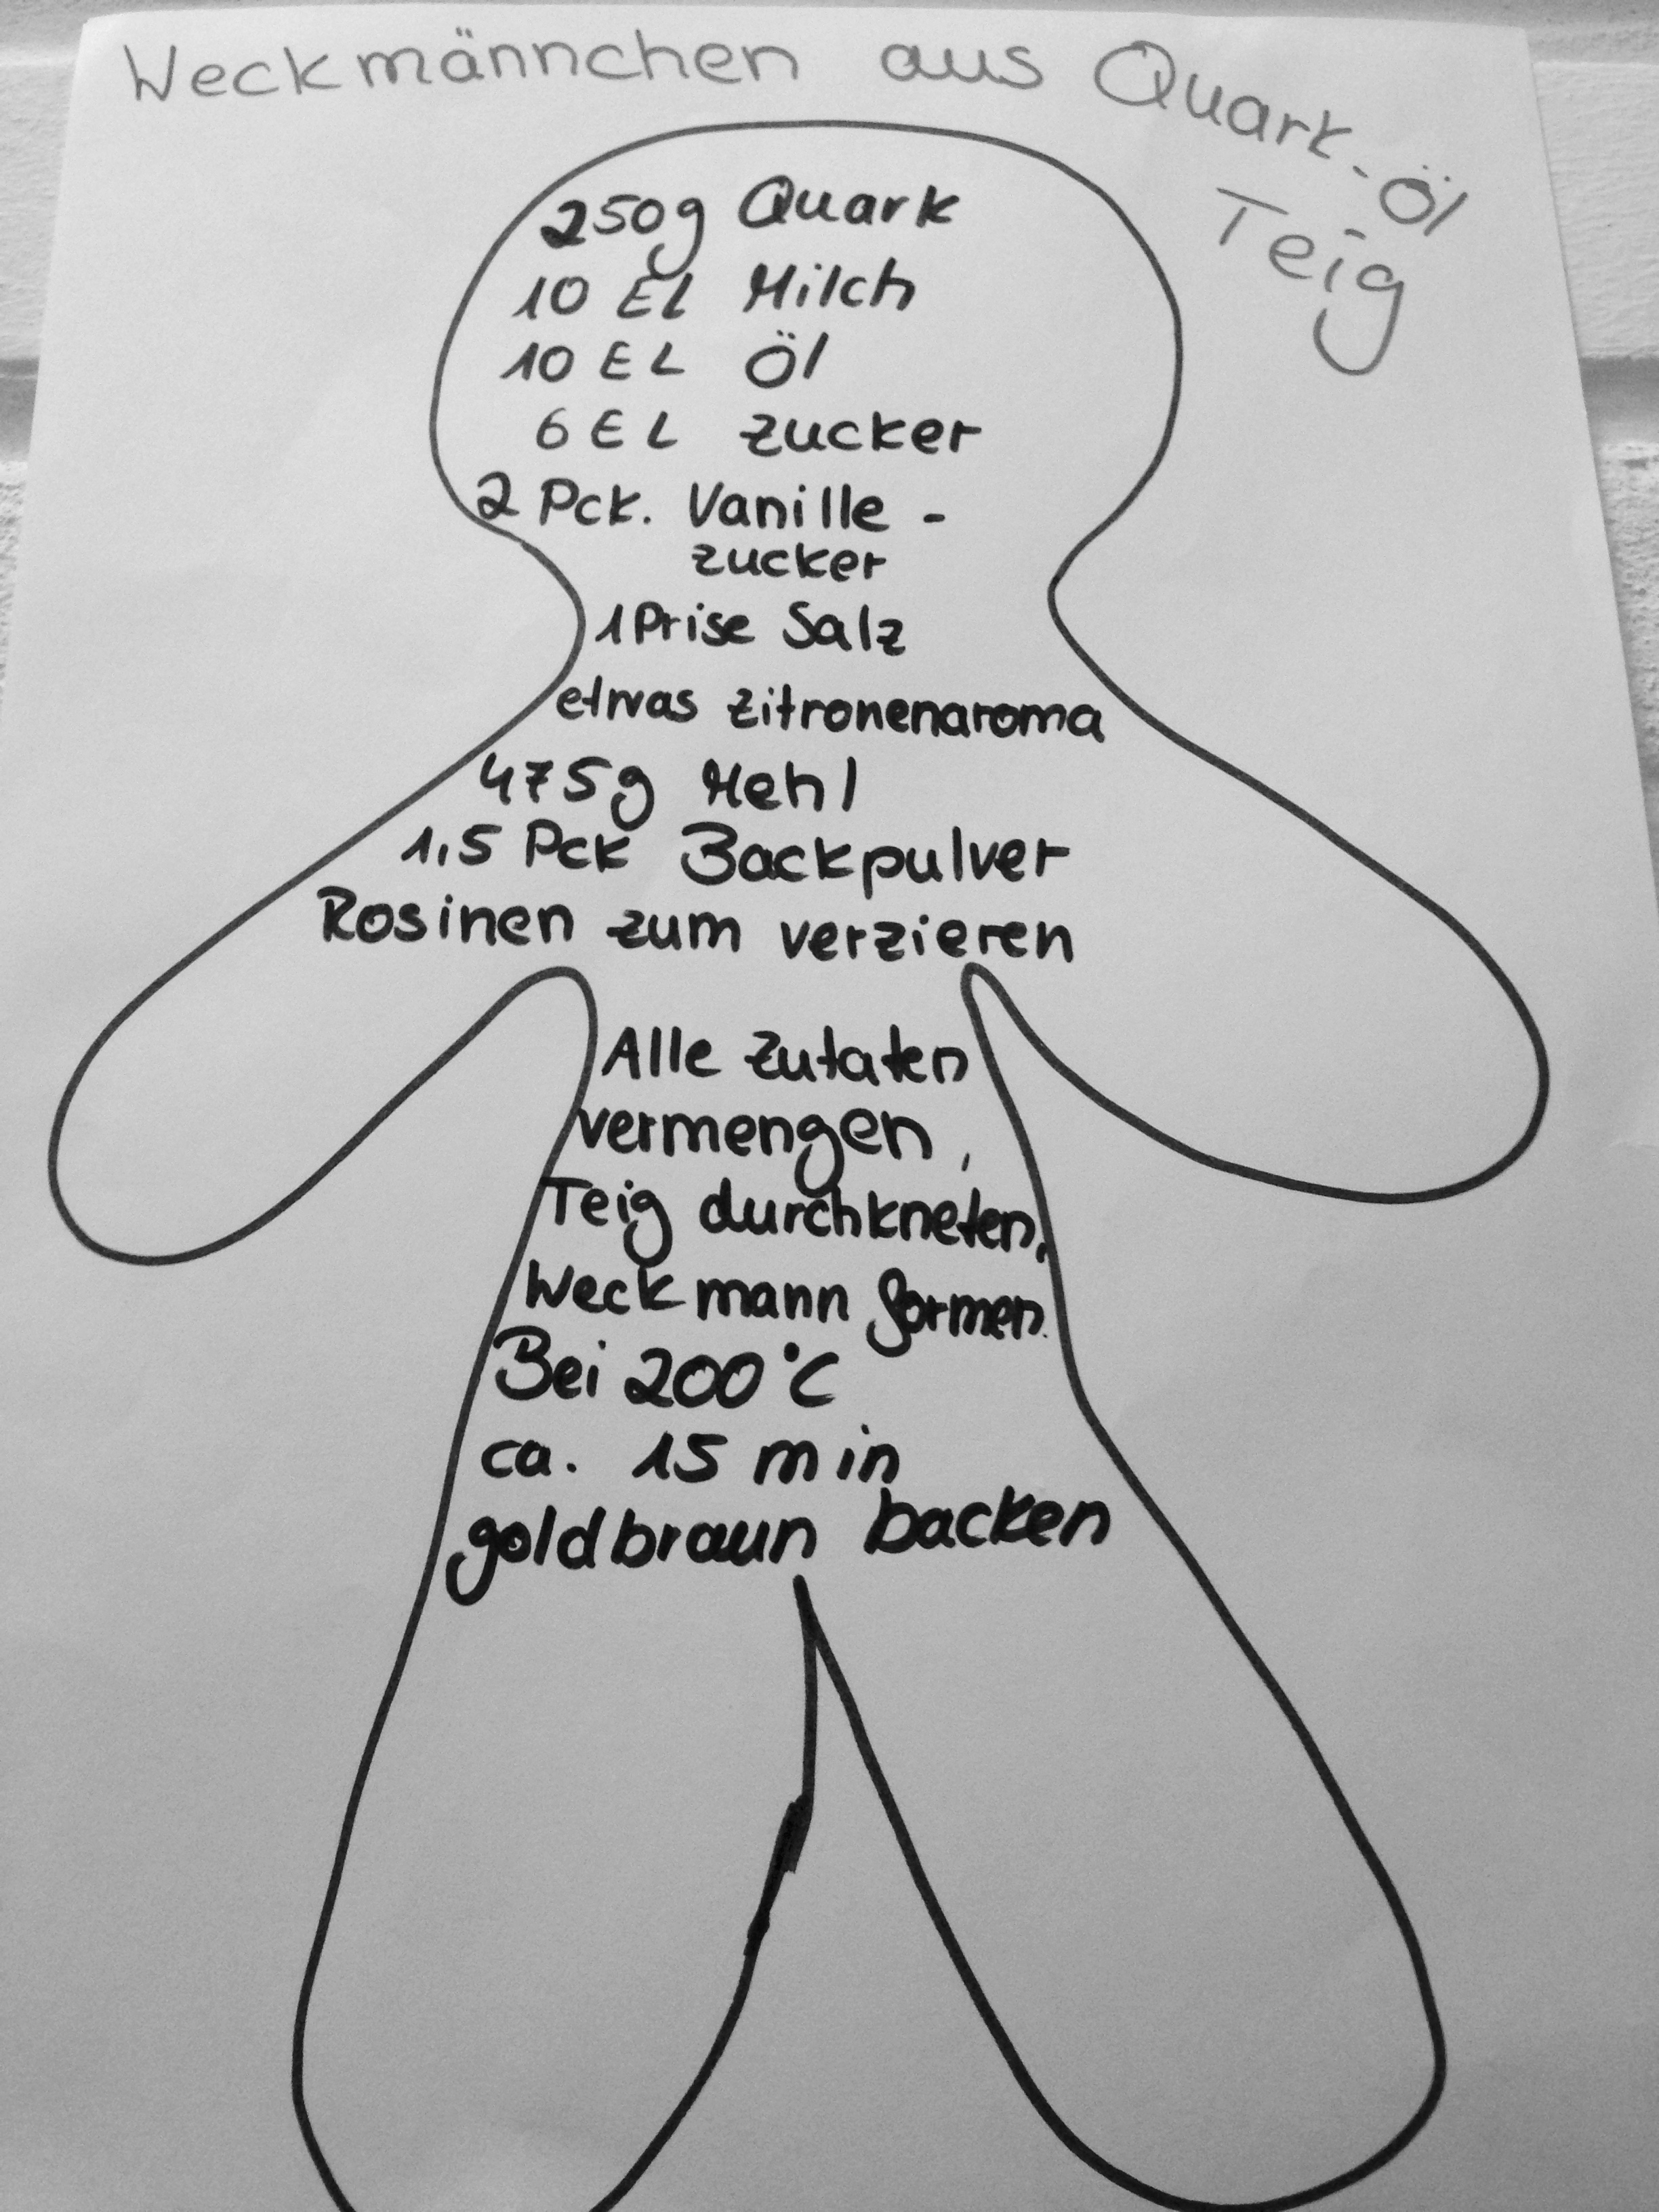 Weckmännchen aus Quark-Öl
Teig
250g Quark
10 EL Milch
10 EL Öl
6 EL Zucker
2 Pck. Vanille-
zucker
1 Prise Salz
etwas Zitronenaroma
475g Mehl
1,5 Pck Backpulver
Rosinen zum verzieren
Alle Zutaten
vermengen,
Teig durchkneten,
Weckmann formen.
Bei 200°C
ca. 15 min
goldbraun backen